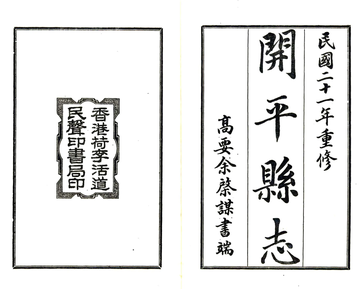 民國二十一年重修
開平縣志
高要余棨謀書端
香港荷李活道
民聲印書局印